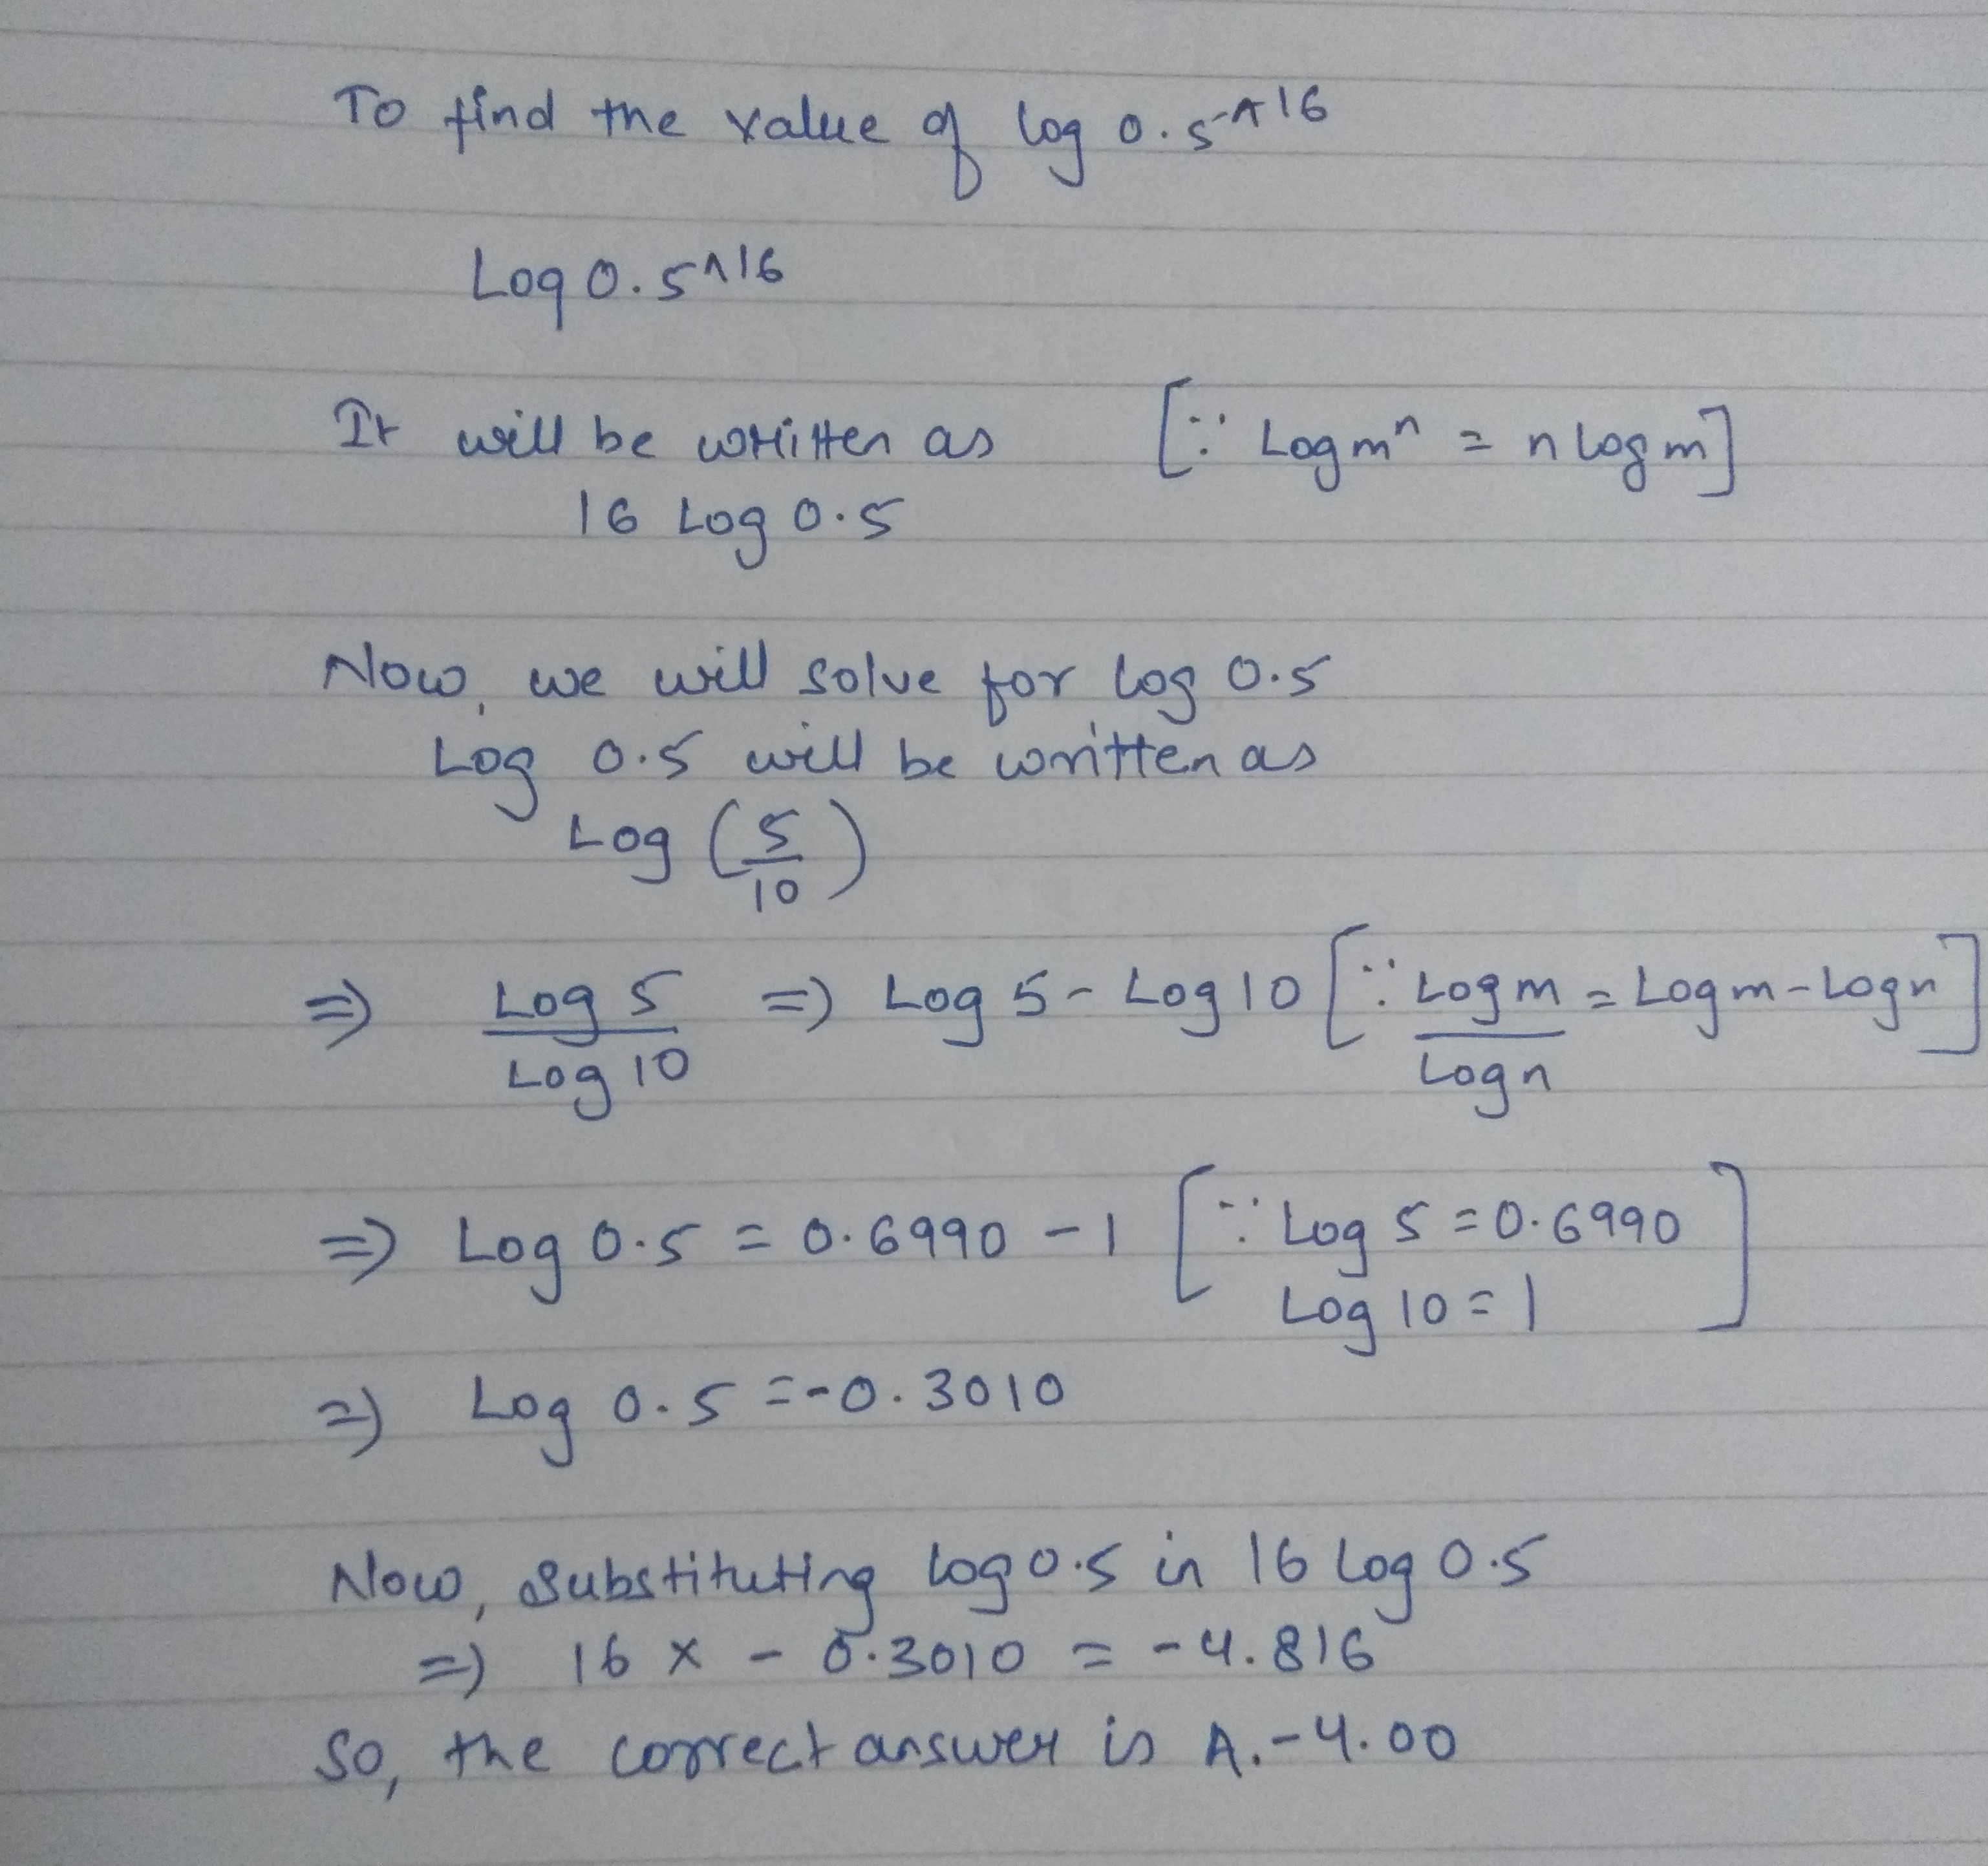 To find the value of log 0.5^16
Log 0.5^16
It will be written as [∵ Log mⁿ = n log m]
16 Log 0.5
Now, we will solve for log 0.5
Log 0.5 will be written as
Log (5/10)
⇒ Log 5/Log 10 ⇒ Log 5 - Log 10 [∵ Log m/Log n = Log m - Log n]
⇒ Log 0.5 = 0.6990 - 1 [∵ Log 5 = 0.6990
Log 10 = 1]
⇒ Log 0.5 = -0.3010
Now, substituting log 0.5 in 16 log 0.5
⇒ 16 x - 0.3010 = -4.816
So, the correct answer is A. -4.00